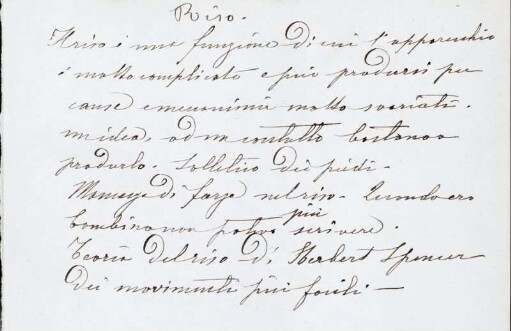 Riso.
Il riso è una funzione di cui l'apparecchio
è molto complicato e può prodursi per
cause e meccanismi molto svariati.
un'idea, od un contatto bastano a
produrlo. Solletico dei piedi.
Mancanza di forze nel riso. Quando ero
bambino non potevo più scrivere.
Teoria del riso di Herbert Spencer
dei movimenti più facili —